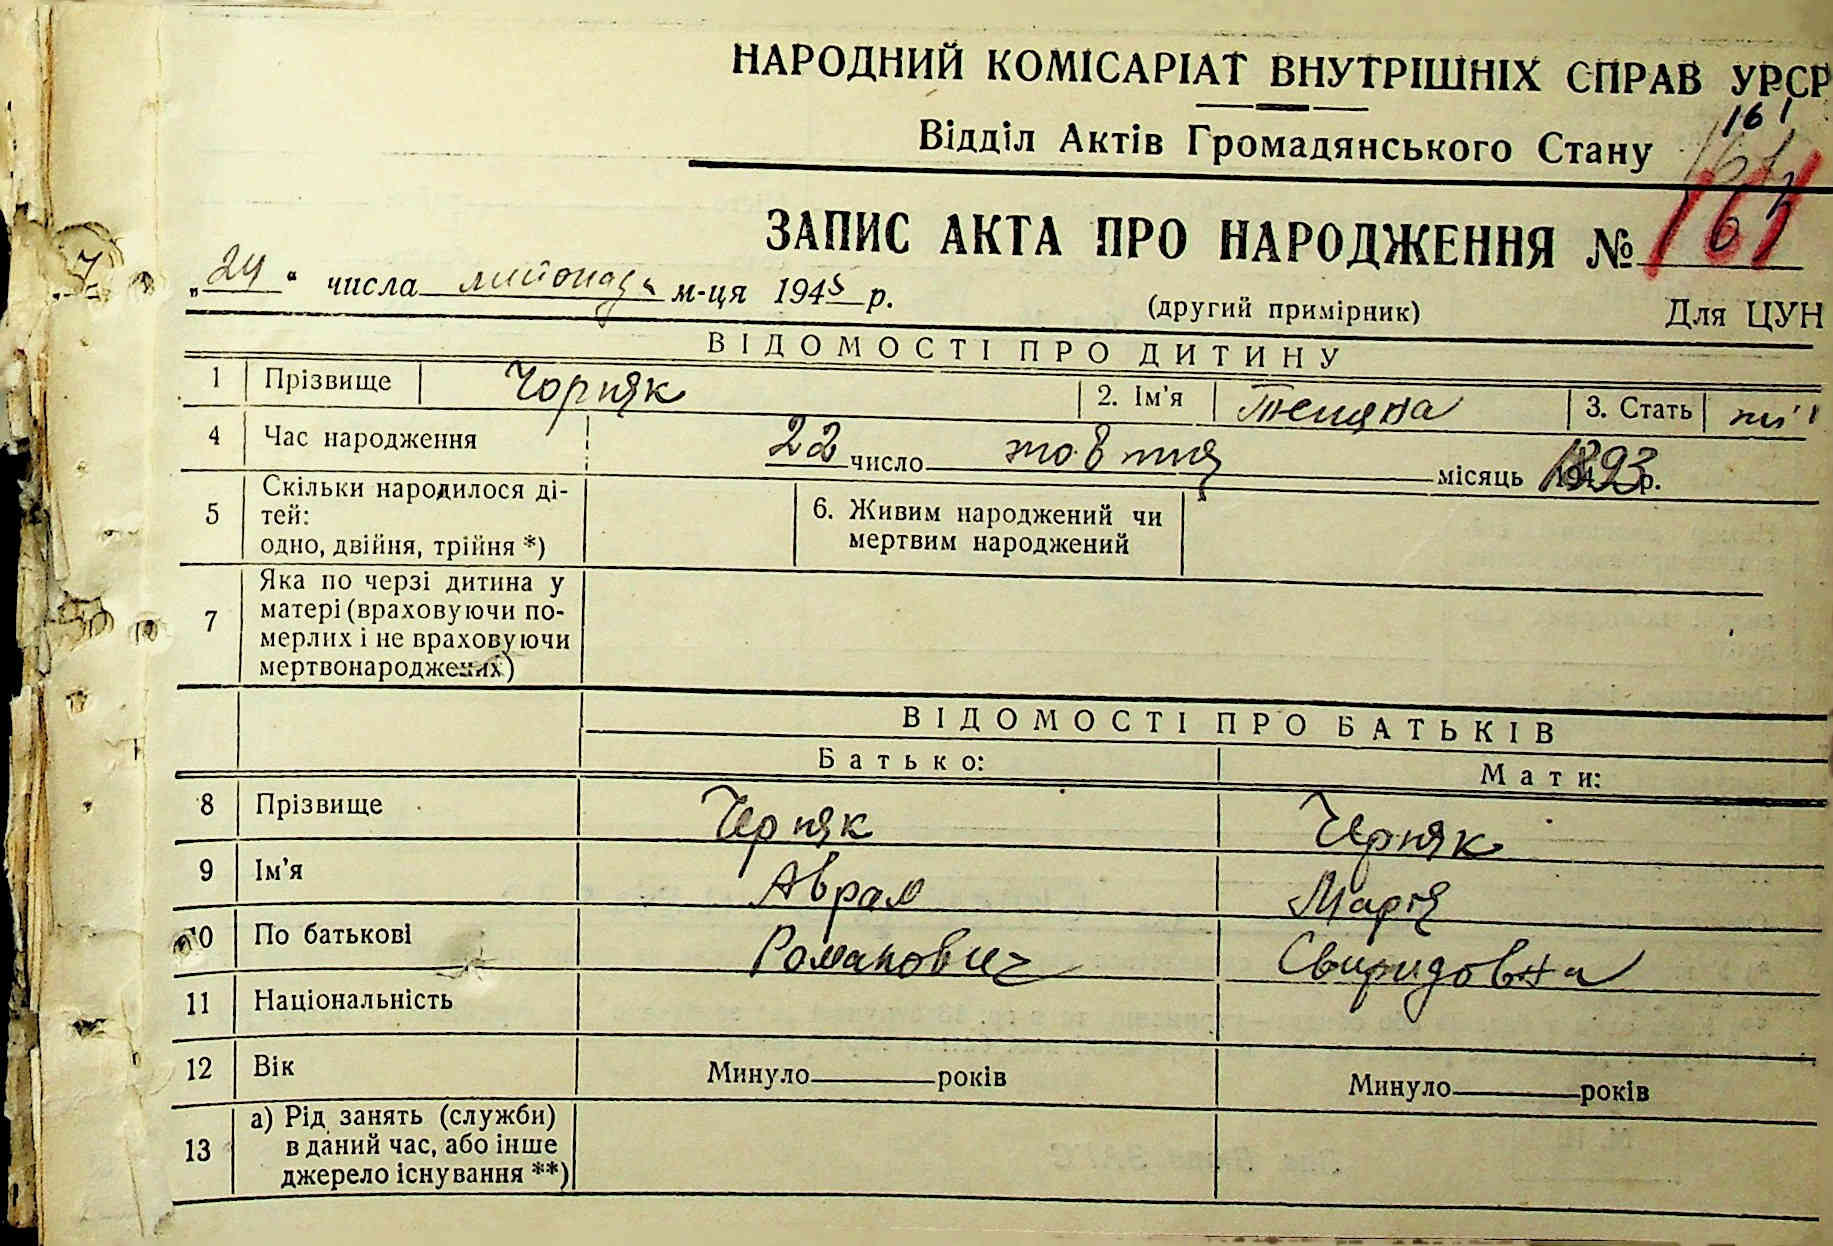 НАРОДНИЙ КОМІСАРІАТ ВНУТРІШНІХ СПРАВ УРСР
161
Відділ Актів Громадянського Стану
ЗАПИС АКТА ПРО НАРОДЖЕННЯ № 161
„24“ числа листопада м-ця 1945 р. (другий примірник) Для ЦУН
ВІДОМОСТІ ПРО ДИТИНУ
1 Прізвище Чорняк 2. Ім'я Тетяна 3. Стать
4 Час народження 22 число жовтня місяць 1893 р.
5 Скільки народилося ді-
тей:
одно, двійня, трійня *)
6. Живим народжений чи
мертвим народжений
7 Яка по черзі дитина у
матері (враховуючи по-
мерлих і не враховуючи
мертвонароджених)
ВІДОМОСТІ ПРО БАТЬКІВ
Батько: Мати:
8 Прізвище Черняк Черняк
9 Ім'я Аврам Марія
10 По батькові Романович Свиридовна
11 Національність
12 Вік Минуло років Минуло років
13 а) Рід занять (служби)
в даний час, або інше
джерело існування **)